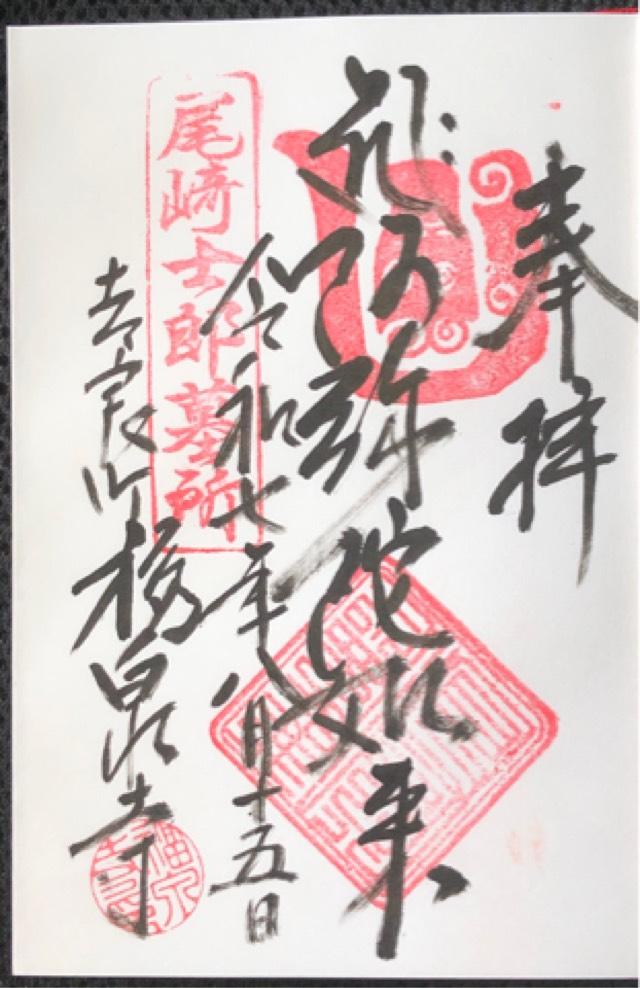 奉拝
阿弥陀如来
令和七年八月十五日
尾崎士郎墓所
吉良町 福泉寺